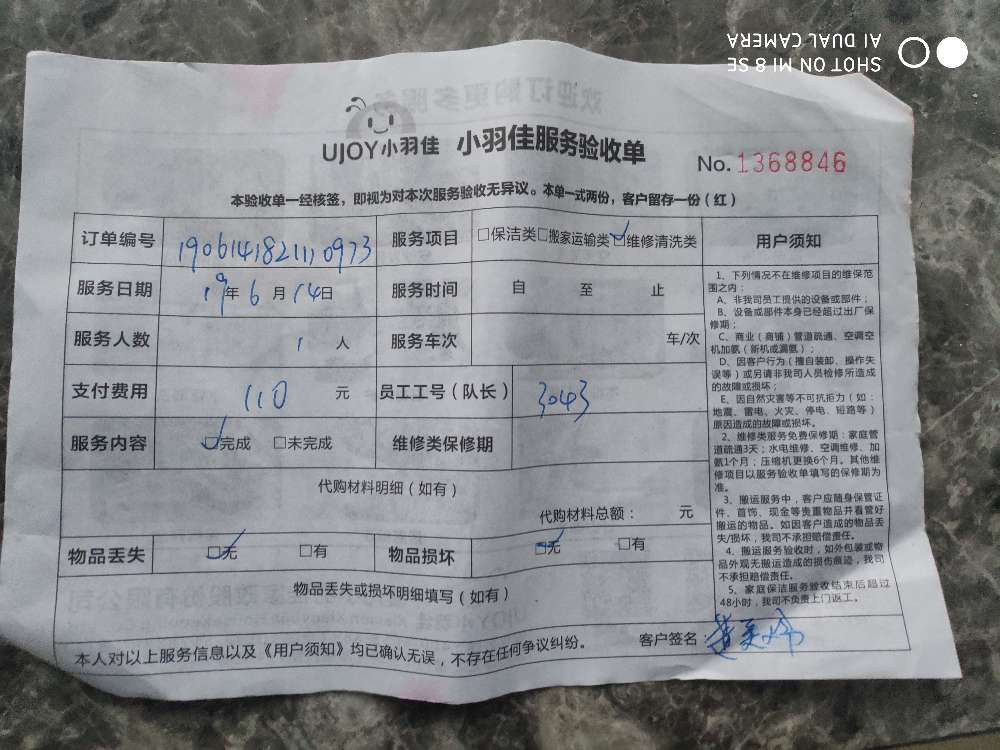 SHOT ON MI 8 SE
AI DUAL CAMERA
UJOY小羽佳 小羽佳服务验收单
No.1368846
本验收单一经核签，即视为对本次服务验收无异议。本单一式两份，客户留存一份（红）
订单编号 服务项目 □保洁类□搬家运输类☑维修清洗类
服务日期 19年6月14日 服务时间 自 至 止
服务人数 1 人 服务车次 车/次
支付费用 110 元 员工工号（队长） 3043
服务内容 ☑完成 □未完成 维修类保修期
代购材料明细（如有）
代购材料总额： 元
物品丢失 ☑无 □有 物品损坏 ☑无 □有
物品丢失或损坏明细填写（如有）
本人对以上服务信息以及《用户须知》均已确认无误，不存在任何争议纠纷。 客户签名：
用户须知
1、下列情况不在维修项目的维保范
围之内：
A、非我司员工提供的设备或部件；
B、设备或部件本身已经超过出厂保
修期；
C、商业（商铺）管道疏通、空调空
机加氨（新机或漏氨）；
D、因客户行为（擅自装卸、操作失
误等）或另请非我司人员检修所造成
的故障或损坏；
E、因自然灾害等不可抗拒力（如：
地震、雷电、火灾、停电、短路等）
原因造成的故障或损坏。
2、维修类服务免费保修期：家庭管
道疏通3天；水电维修、空调维修、加
氨1个月；压缩机更换6个月。其他维
修项目以服务验收单填写的保修期为
准。
3、搬运服务中，客户应随身保管证
件、首饰、现金等贵重物品并看管好
搬运的物品。如因客户造成的物品丢
失/损坏，我司不承担赔偿责任。
4、搬运服务验收时，如外包装或物
品外观无搬运造成的损伤痕迹，我司
不承担赔偿责任。
5、家庭保洁服务验收结束后超过
48小时，我司不负责上门返工。